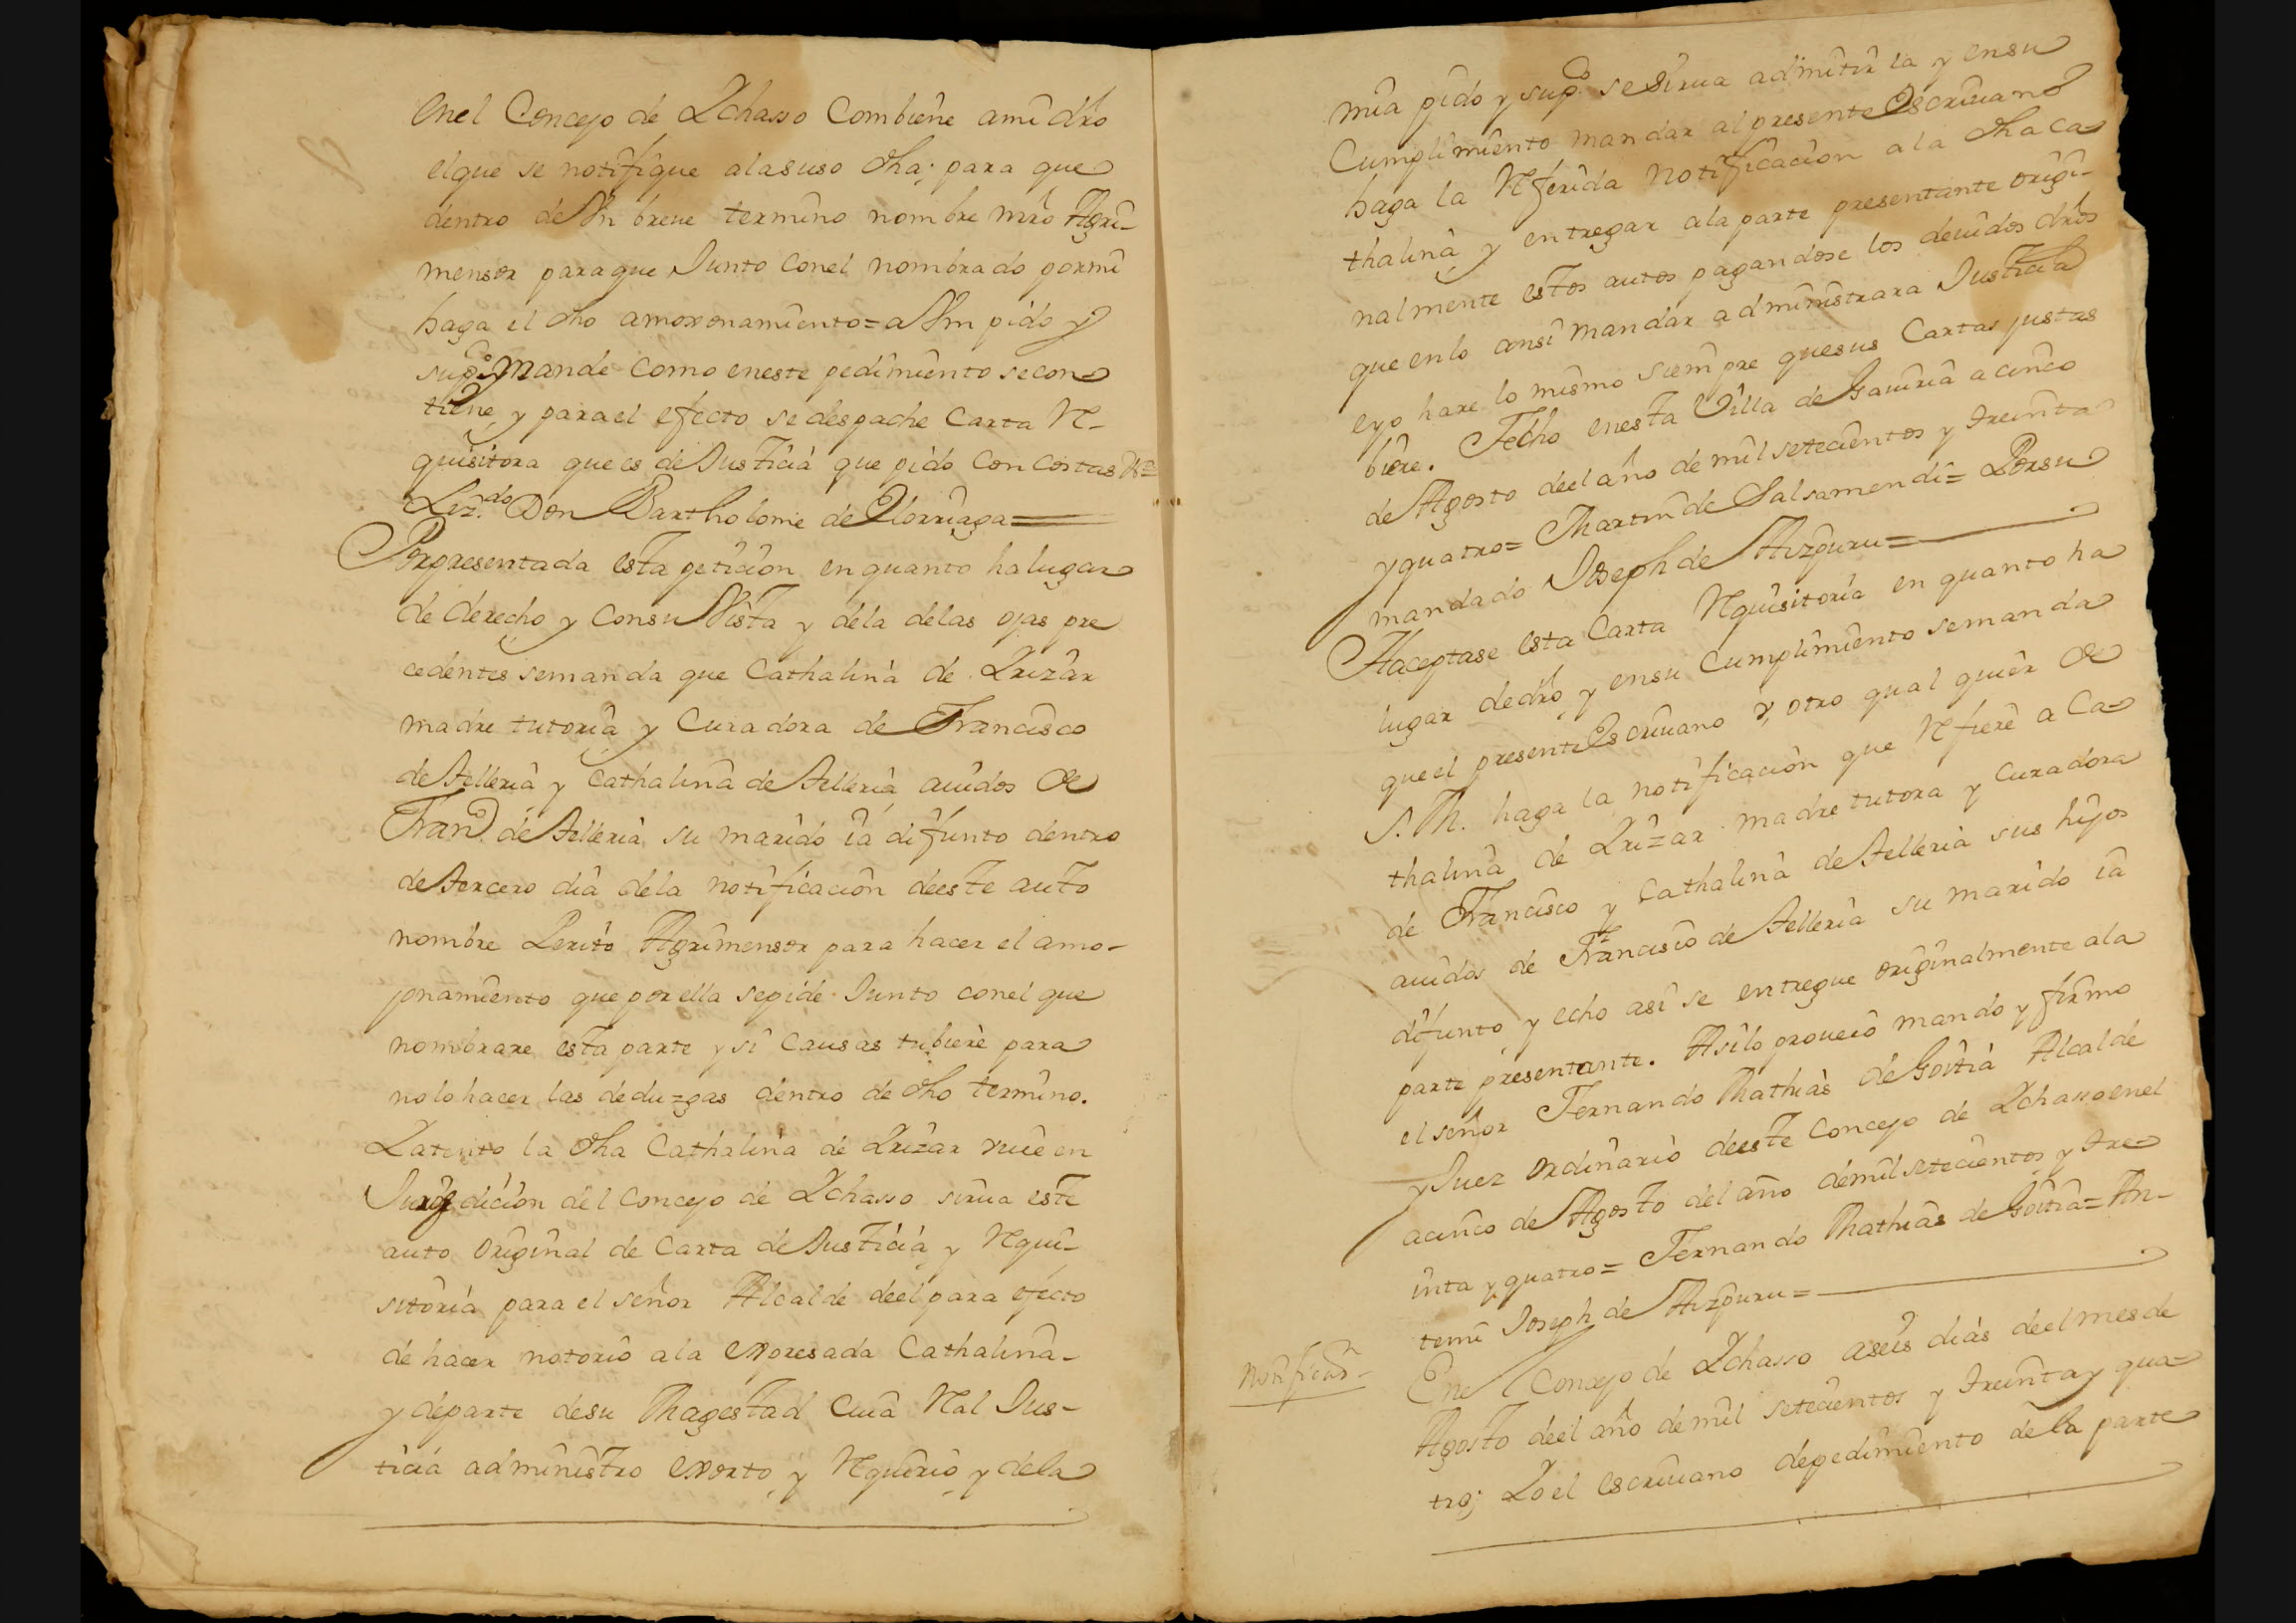 enel Concejo de Ychasso Combiene ami dro
elque se notifique alasuso dha; para que
dentro de Vn breue termino nombre mro Agri-
mensor paraque Junto conel nombrado pormi
haga el dho amoxonamiento = a Vm pido y
supco Mande como eneste pedimiento secon-
tiene, y parael efecto se despache Carta Re-
quisitora que es de Justicia que pido con costas
Lizdo Don Bartholome de Elorriaga =
Porpresentada esta peticion en quanto halugar
de derecho y consu Vista y dela delas ojas pre
cedentes semanda que Cathalina de Yrizar
madre tutoria y Curadora de Francisco
de Telleria y Cathalina de Telleria auidos de
Franco de Telleria su marido ia difunto dentro
de tercero dia dela notificacion deeste auto
nombre Perito Agrimensor para hacer el amo-
jonamiento que por ella sepide Junto conel que
nombrare esta parte y si causas tubiere para
nolohacer las deduzgas dentro de dho termino.
Yatento la dha Cathalina de Yrizar viue en
Jurisdicion del Concejo de Ychasso sirua este
auto original de Carta de Justicia y Requi-
sitoria para el señor Alcalde deel para efecto
de hacer notorio ala expresada Cathalina-
y departe desu Magestad Cuia Real Jus-
ticia administro exorto y Requiero y dela
mia pido y supco se sirua admitir la y ensu
Cumplimiento mandar al presente Escriuano
haga la Referida notificacion ala dha Ca-
thalina y entregar ala parte presentante origi-
nalmente estos autos pagandose los deuidos dros
que enlo ansi mandar administrara Justicia
eyo hare lo mismo siempre quesus Cartas justas
biere. Fecho enesta Villa de Gauiria acinco
de Agosto deel año de mil setecientos y treinta
yquatro = Martin de Salsamendi = Porsu
mandado Joseph de Aizpuru =
Haceptase esta Carta Requisitoria en quanto ha
lugar dedro y ensu cumplimiento semanda
queel presente Escriuano v, otro qual quier de
S. M. haga la notificacion que Refiere a Ca-
thalina de Yrizar madre tutora y Curadora
de Francisco y Cathalina de Telleria sus hijos
auidos de Francisco de Telleria su marido ia
difunto y echo asi se entregue originalmente ala
parte presentante. Asilo proueio mando y firmo
el señor Fernando Mathias de Goitia Alcalde
y Juez ordinario deeste Concejo de Ychasso enel
acinco de Agosto del año demil setecientos y tre-
inta y quatro = Fernando Mathias de Goitia = An-
temi Joseph de Aizpuru =
Notificon-
Enel Concejo de Ychasso aseis dias deel mesde
Agosto deel año demil setecientos y treintay qua-
tro; Yoel escriuano depedimiento dela parte